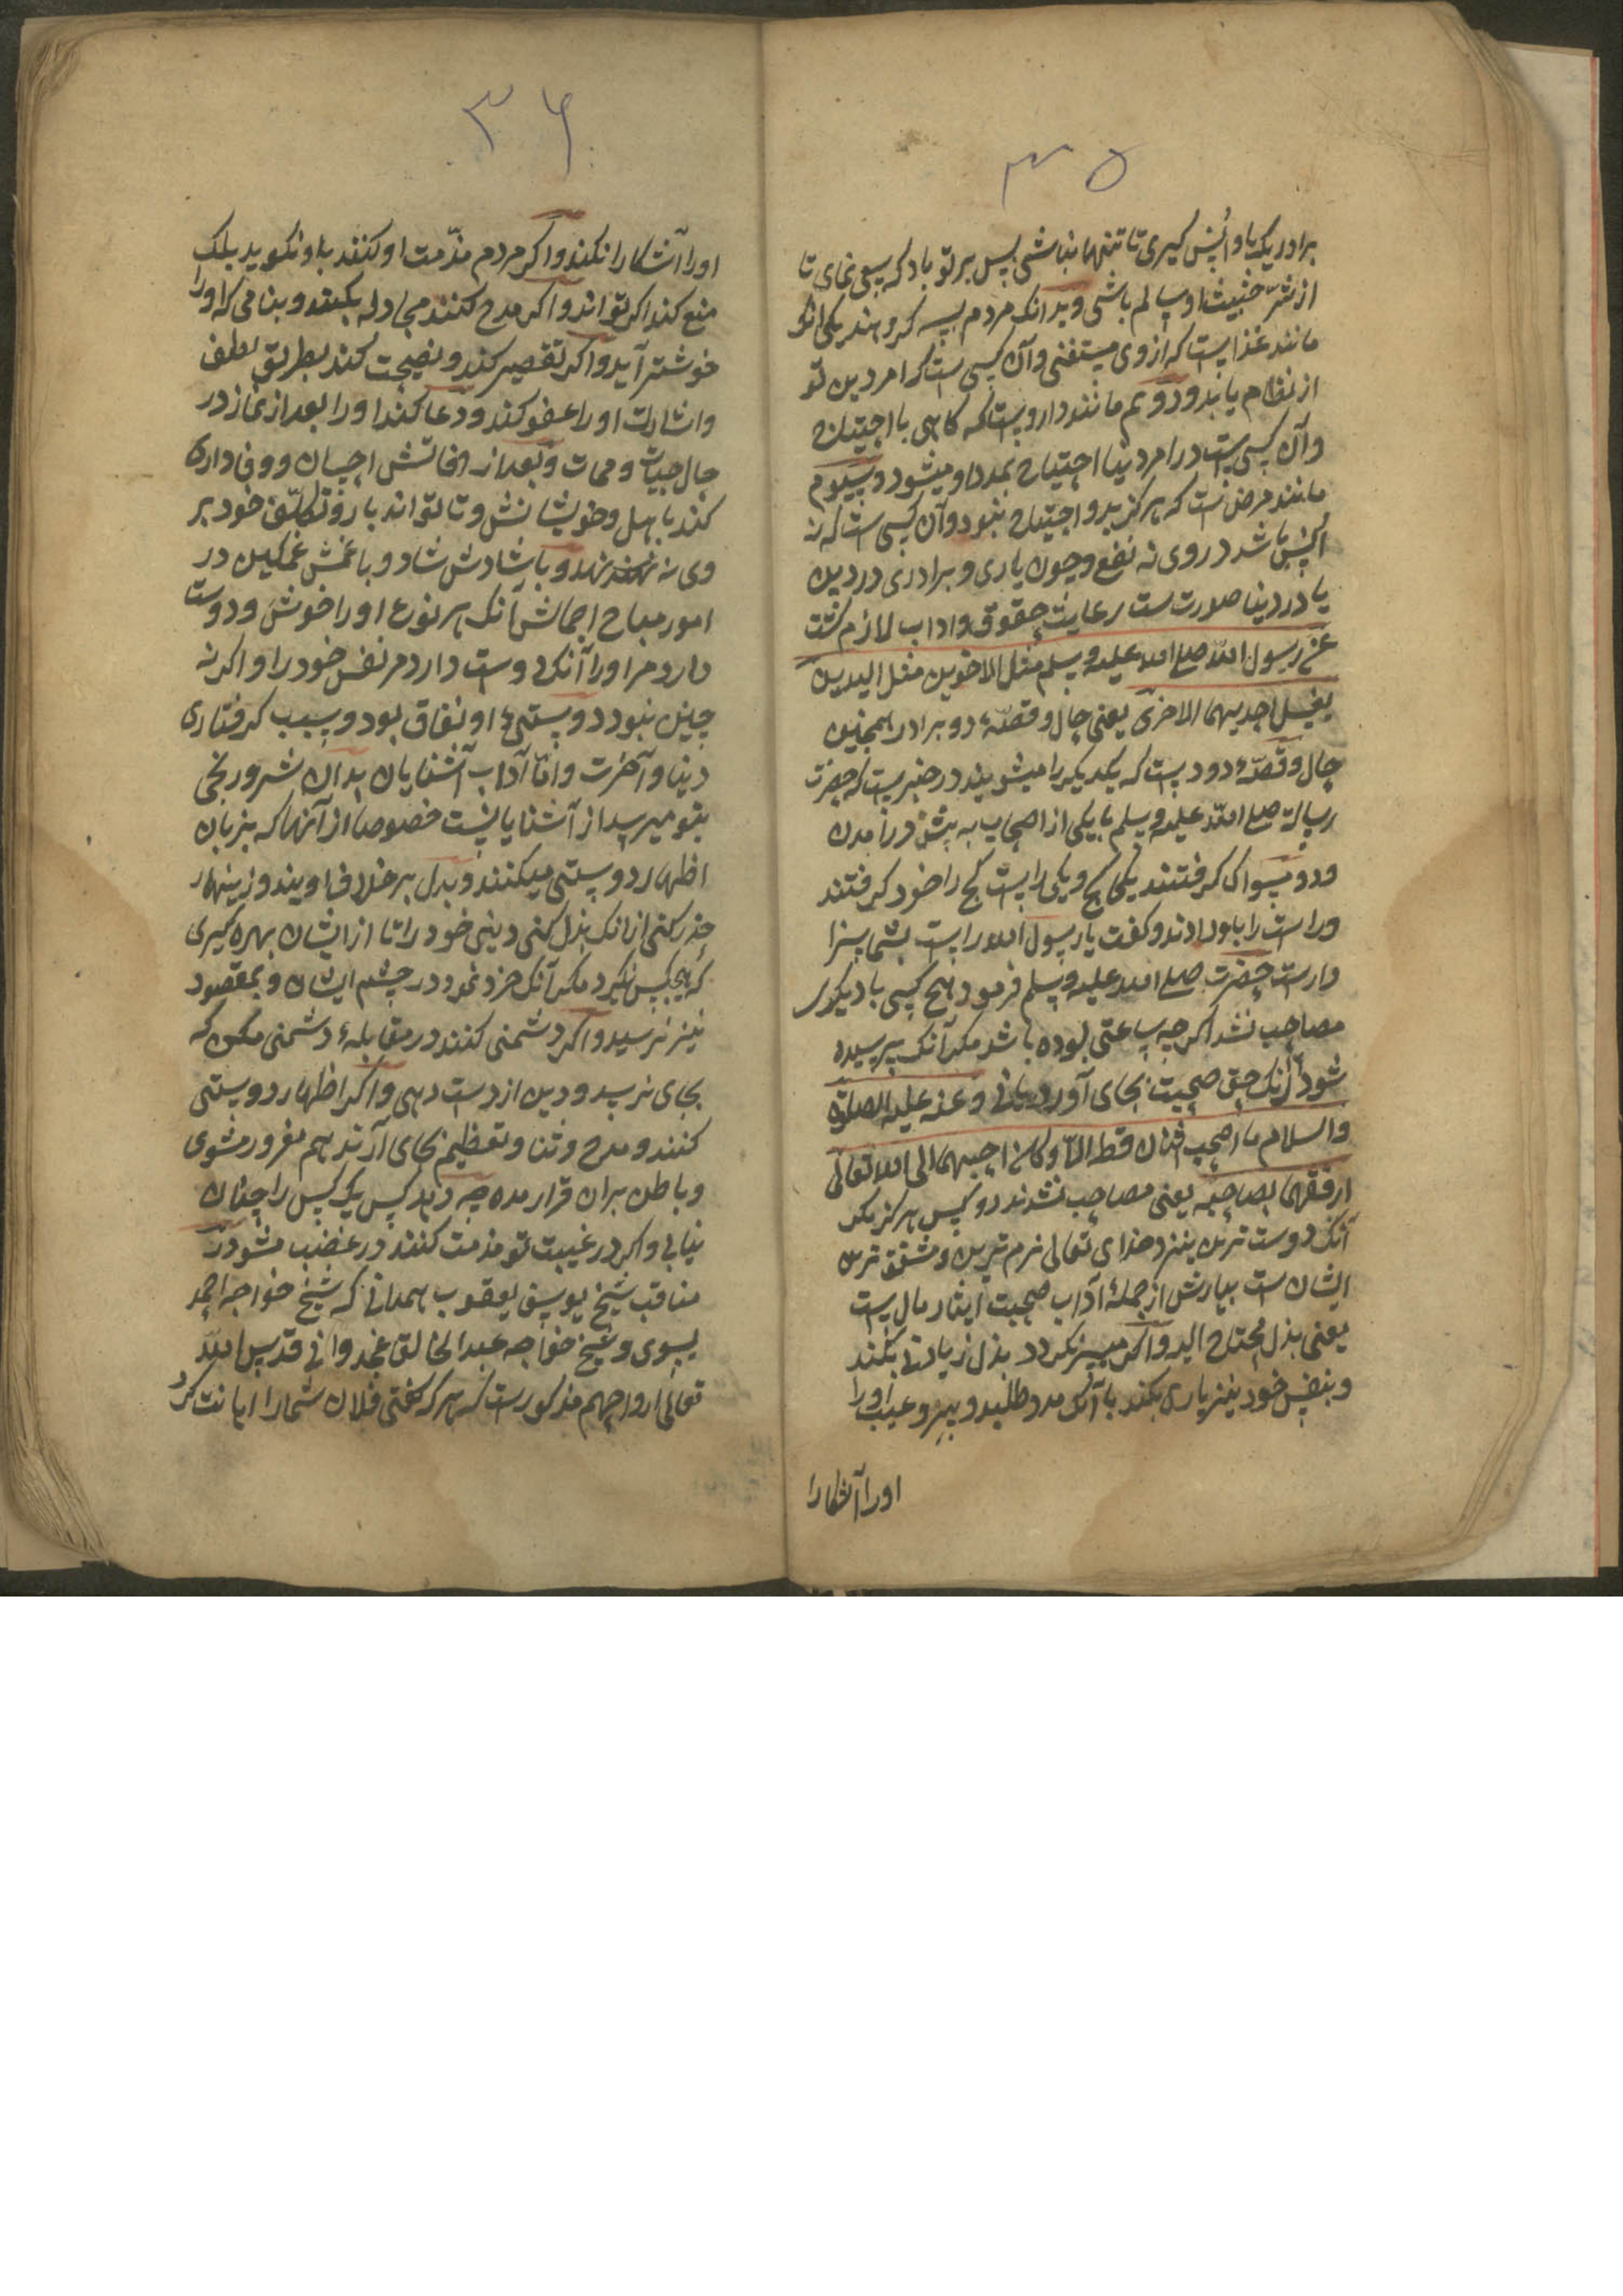 ۳۵
برادر یک باو انس کیری تا تنها نباشی پس بر تو باد که سعی نمای تا
از شر خبیث او سالم باشی وبدانک مردم سه کروهند یکی انک
مانند غذاست که ازوی مستغنی وآن کسی ست که امر دین تو
از نظام یابد ودوم مانند داروست که کاهی با احتیاج
وآن کسی ست در امر دنیا احتیاج بمدد او میشود وسیوم
مانند مرض ست که هرکز بدو احتیاج نبود وآن کسی ست که نه
انس باشد در وی نه نفع وچون یاری وبرادری در دین
یا در دنیا صورت ست رعایت حقوق واداب لازم کشت
عن رسول الله صلی الله علیه وسلم مثل الاخوین مثل الیدین
یغسل احدیهما الاخری یعنی حال وقصّهٔ دو برادر همچنین
حال وقصّهٔ دو دست که یکدیکر را میشویند در خبر ست که حضرت
رسالت صلی الله علیه وسلم با یکی از اصحاب به بیشه در آمدن
ودو مسواک کرفتند یکی کج ویکی راست کج را خود کرفتند
وراست را باو دادند وکفت یا رسول الله راست بشما سزا
وارست حضرت صلی الله علیه وسلم فرمود هیچ کسی با دیکری
مصاحب نشد اکرچه ساعتی بوده باشد مکر آنک پرسیده
شود آنک حق صحبت بجای آورد یا نی وعنه علیه الصلوة
والسلام ما اصحب اثنان قط الّا وکان احبهما الی الله تعالی
ارفقهما بصاحبه یعنی مصاحب نشدند دو کس هرکز مکر
آنک دوست ترین بنزد خدای تعالی نرم ترین ومشفق ترین
ایشان ست بیارش از جملهٔ آداب صحبت ایثار مال ست
یعنی بذل محتاج الیه واکر میسر نکردد بذل زیادتی بکند
وبنفس خود نیز یاری بکند با آنک مدد طلبد وسِرّ وعیب اورا
اورا آشکارا
۳۶
اورا آشکارا نکند واکر مردم مذّمت او کنند باو نکوید بلک
منع کند اکر تواند واکر مدح کنند مجادله بکند وبنامی که اورا
خوشتر آید واکر تقصیر کند ونصیحت کند بطریق لطف
واشارت اورا عفو کند ودعا کند اورا بعد از نماز در
حال حیات وممات وبعد از وفاتش احسان ووفاداری
کند باهل وخویشانش وتا تواند بار وتکلّف خود بر
وی نه نهد وبا شادیش شاد وبا غمش غمکین در
امور مباح اجمالش آنک بهر نوع اورا خوش ودوست
دارد مر اورا آنک دوست دارد مر نفس خود را واکر نه
چنین نبود دوستیٔ او نفاق بود وسبب کرفتاری
دنیا وآخرت وامّا آداب آشنایان بدان شر ورنجی
بتو میرسد از آشنایانست خصوصا از آنها که بزبان
اظهار دوستی میکنند وبدل بر خلاف اویند وزینهار
حذر کنی از انک بذل کنی دینی خود را تا از ایشان بهره کیری
که هیچکس نکیرد مکر آنک خرد نمود در چشم ایشان وبمقصود
نیز نرسید واکر دشمنی کنند در مقابلهٔ دشمنی مکن که
بجای نرسد ودین از دست دهی واکر اظهار دوستی
کنند ومدح وثنا وتعظیم بجای آرند هم مغرور مشوی
وباطن بران قرار مده چه در صد کس یک کس را چنان
نیابی واکر در غیبت تو مذمت کنند در غضب مشو در
مناقب شیخ یوسف یعقوب همدانی که شیخ خواجه احمد
یسوی وشیخ خواجه عبد الخالق غجدوانی قدس الله
تعالی ارواحهم مذکورست که هر که کفتی فلان شمارا اهانت کرد